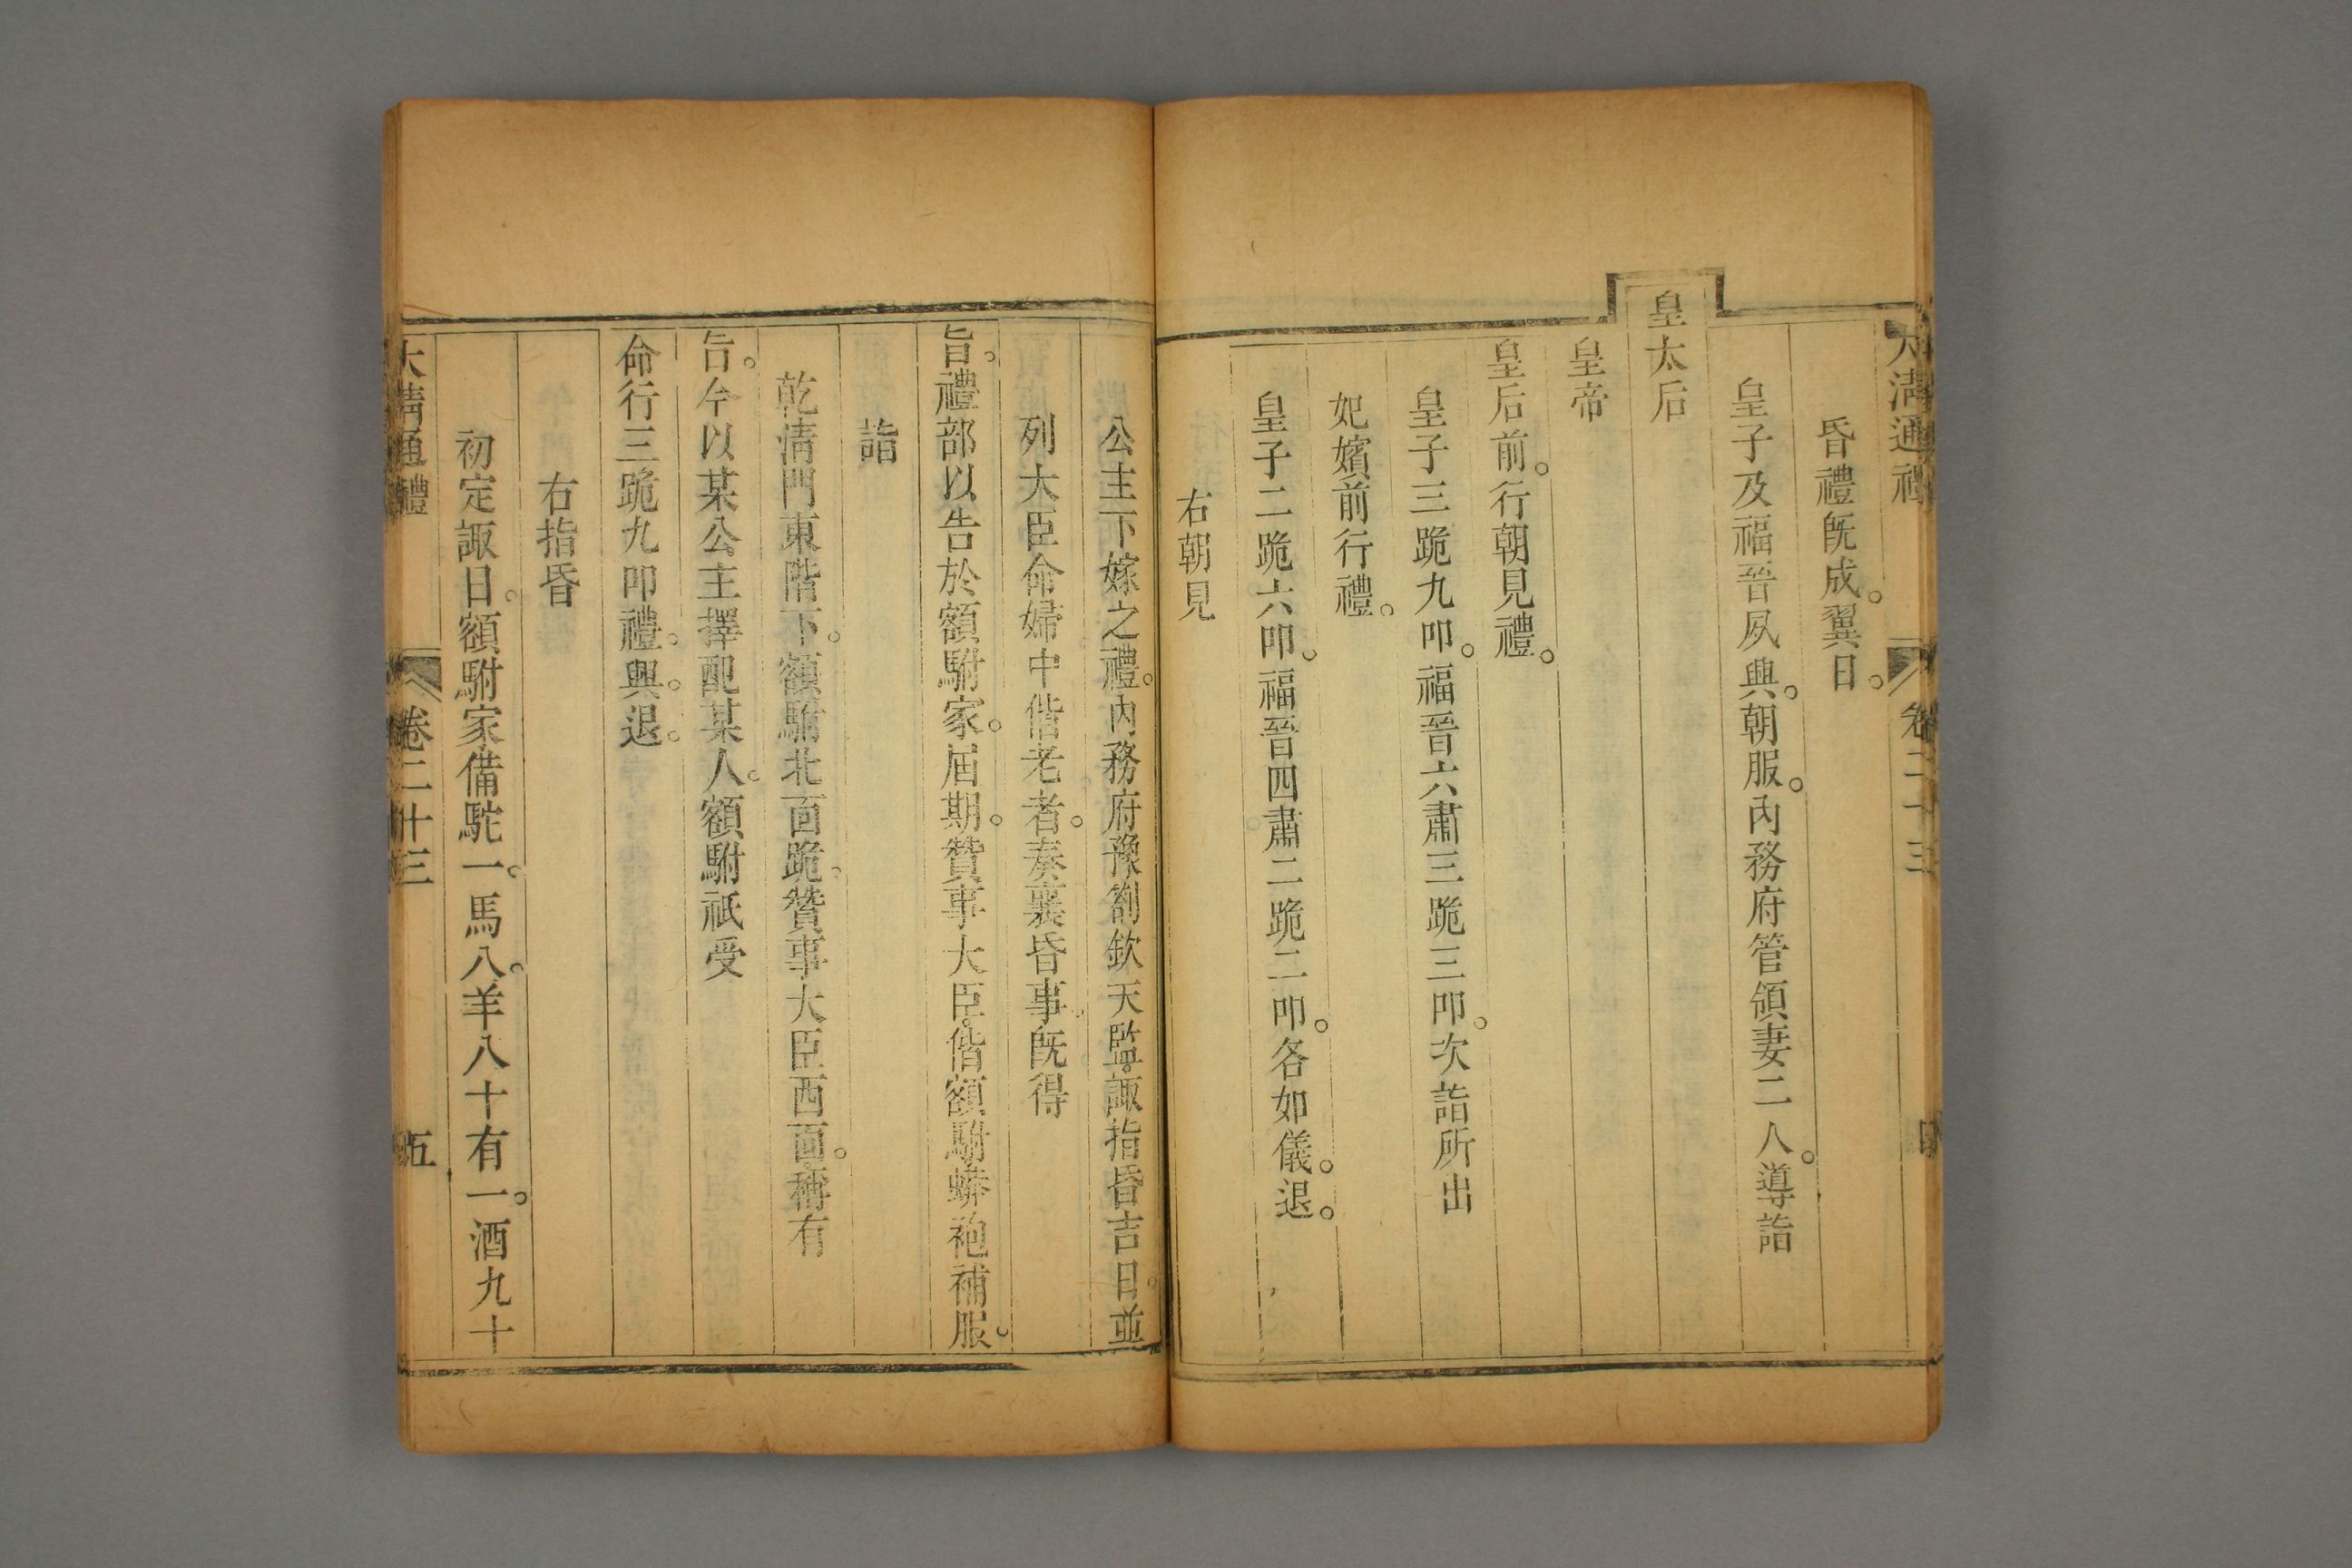 大清通禮 卷二十三 四
昏禮旣成。翼日。
皇子及福晉夙興。朝服。內務府管領妻二人。導詣
皇太后
皇帝
皇后前。行朝見禮。
皇子三跪九叩。福晉六肅三跪三叩。次詣所出
妃嬪前行禮。
皇子二跪六叩。福晉四肅二跪二叩。各如儀。退。
右朝見
公主下嫁之禮。內務府豫劄欽天監諏指昏吉日。並
列大臣命婦中偕老者。奏襄昏事。旣得
旨。禮部以告於額駙家。屆期。贊事大臣。偕額駙蟒袍補服。
詣
乾淸門東階下。額駙北面跪。贊事大臣西面。稱有
旨。今以某公主擇配某人。額駙祇受
命行三跪九叩禮。興。退。
右指昏
初定諏日。額駙家備駝一。馬八。羊八十有一。酒九十
大淸通禮 卷二十三 五